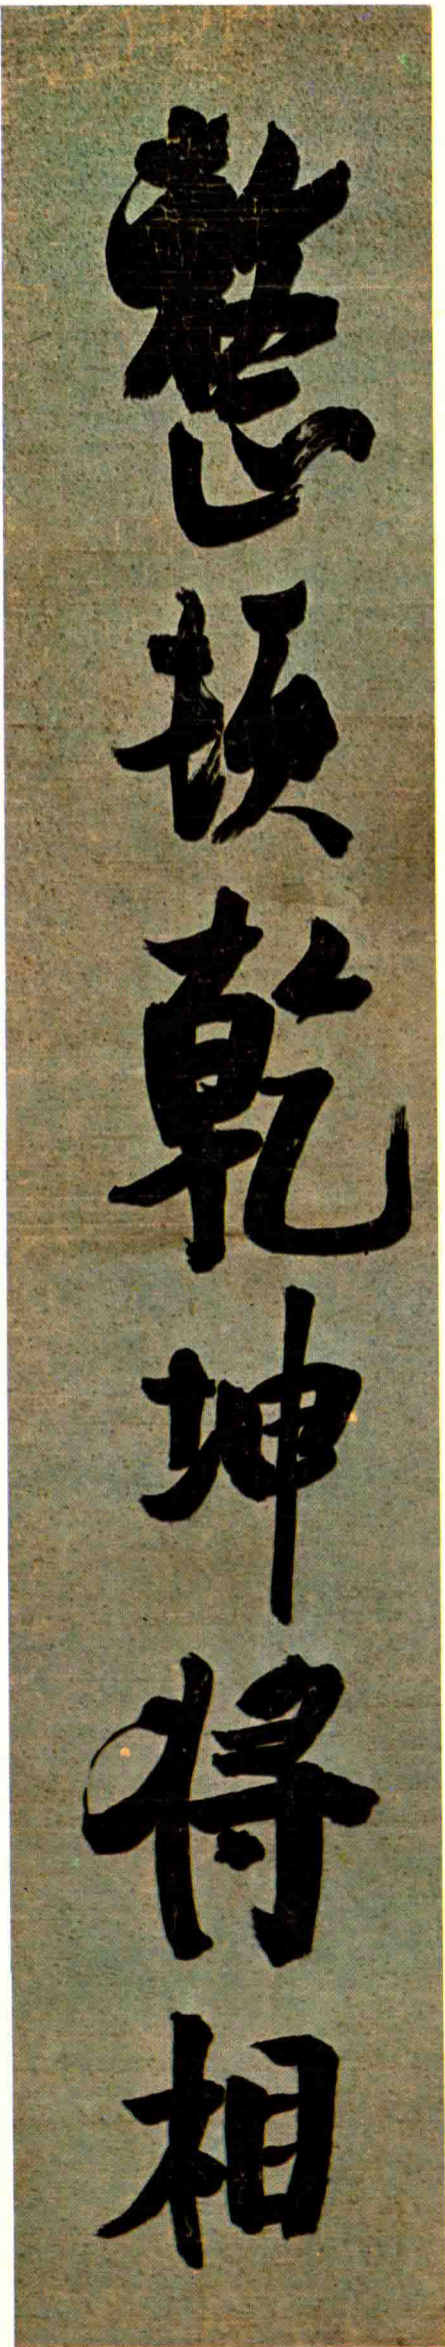 整頓乾坤將相